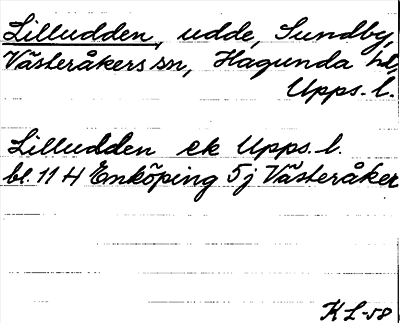 Lilludden, udde, Sundby,
Västeråkers sn, Hagunda hd,
Upps. l.
Lilludden ek Upps. l.
bl. 11 H Enköping 5j Västeråker
KL-58